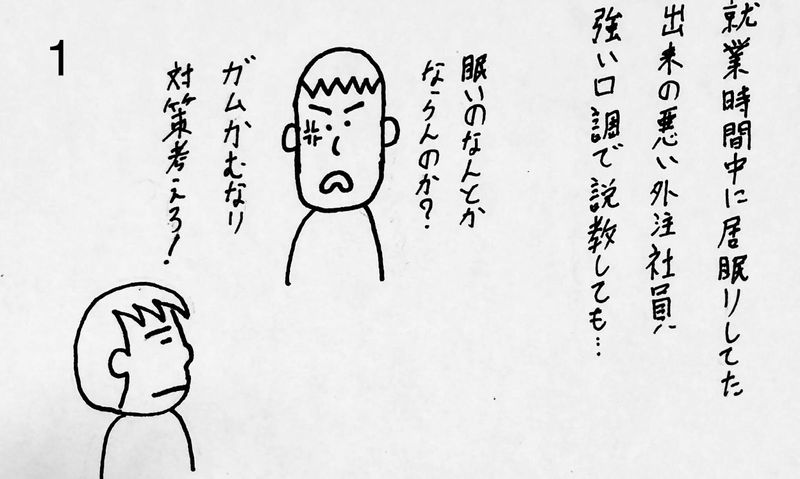 1
就業時間中に居眠りしてた
出来の悪い外注社員
強い口調で説教しても…
眠いのなんとか
ならんのか?
ガムかむなり
対策考えろ!